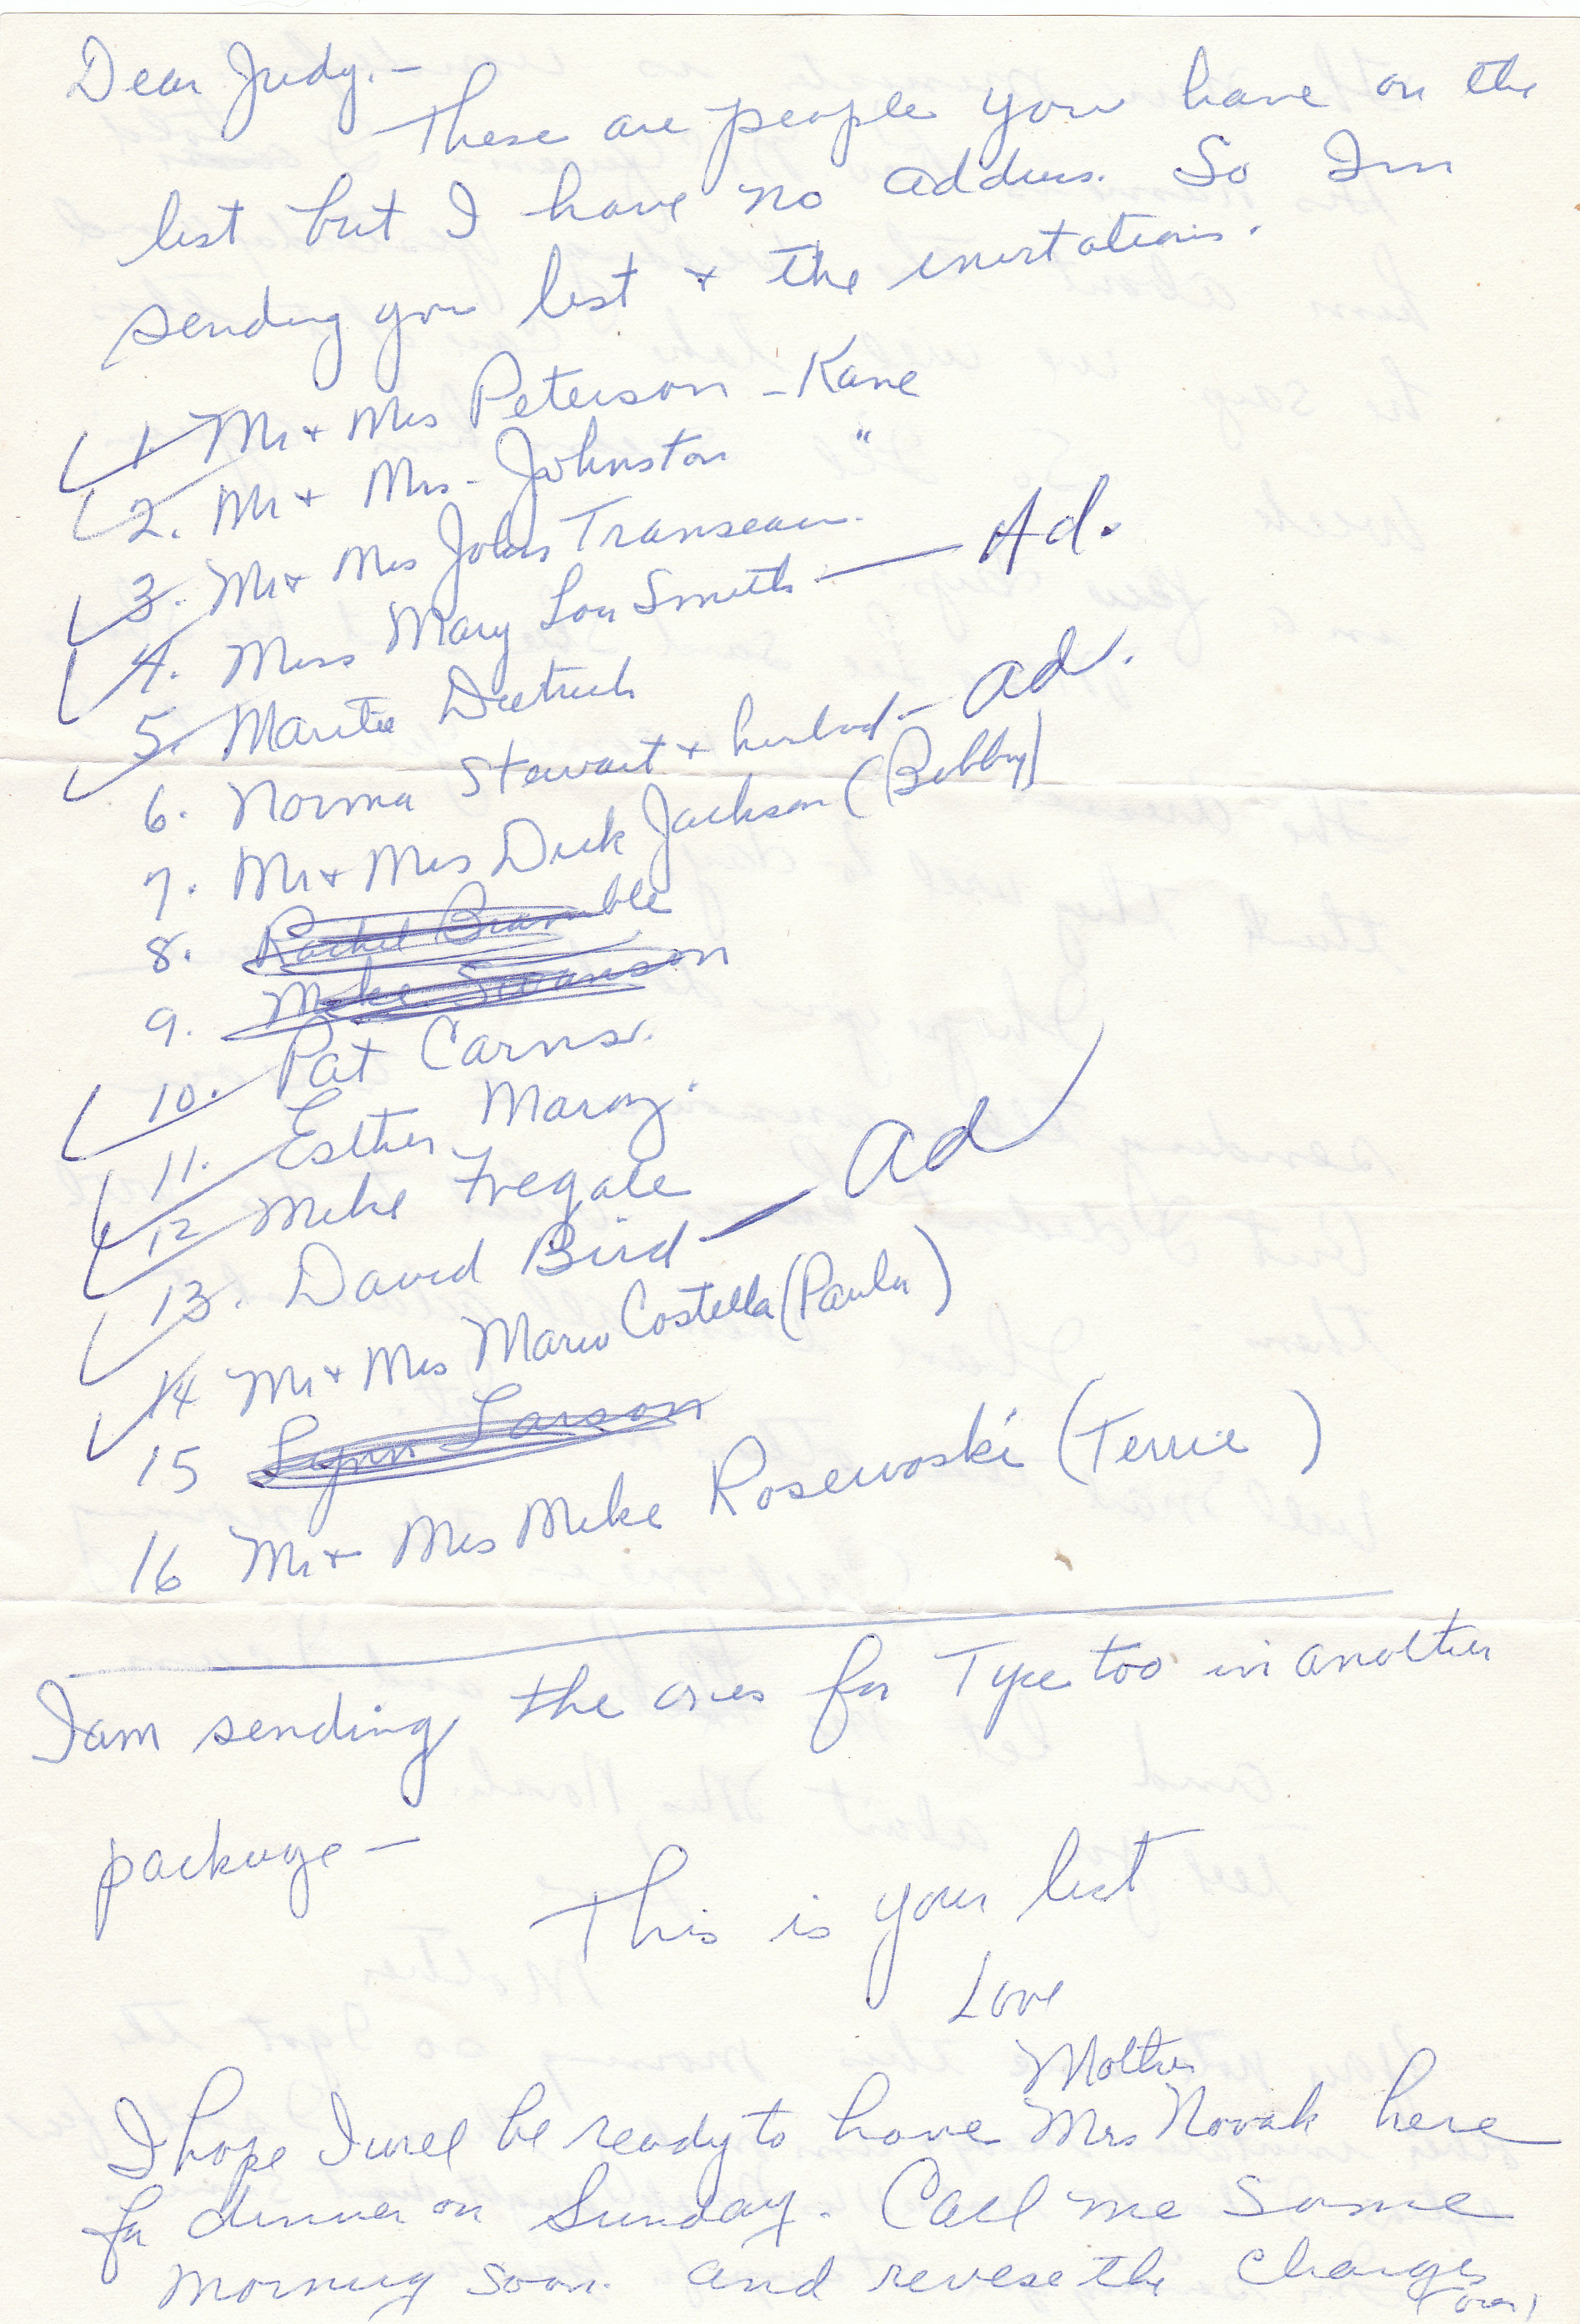 Dear Judy. -
These are people you have on the
list but I have no address. So Im
sending you list + the invitations.
1. Mr + Mrs Peterson - Kane
2. Mr + Mrs - Johnston "
3. Mr + Mrs John Transeau.
4. Miss Mary Lou Smith — Ad.
5. Marita Dietrich
6. Norma Stewart + husband - ad.
7. Mr + Mrs Dick Jackson (Bobby)
8. Rachel Bramble
9. Mike Swanson
10. Pat Carns.
11. Esther Marozi.
12 Mike Fregale
13. David Bird — ad
14 Mr + Mrs Mario Costella (Paula)
15 Lynn Larson
16 Mr + Mrs Mike Rosewoski (Terrie)
I am sending the ones for Tyce too in another
package —
This is your list
Love
Mother
I hope I will be ready to have Mrs Novak here
for dinner on Sunday. Call me some
morning soon. and revese the charges
(over)